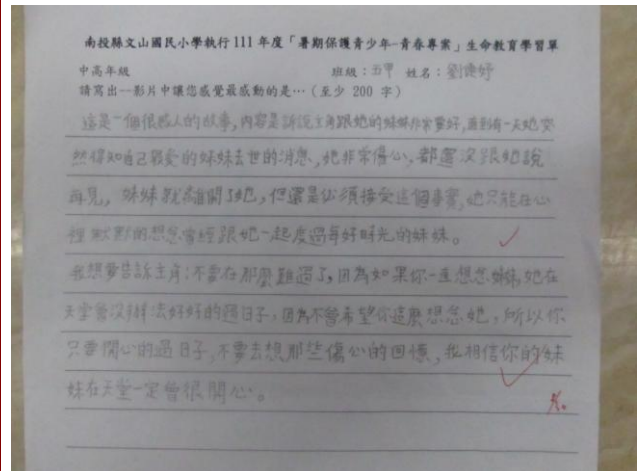 南投縣文山國民小學執行111年度「暑期保護青少年-青春專案」生命教育學習單
中高年級 班級：五甲 姓名：劉婕妤
請寫出--影片中讓您感覺最感動的是…（至少 200 字）
這是一個很感人的故事，內容是訴說主角跟她的妹妹非常要好，直到有一天她突
然得知自己最愛的妹妹去世的消息，她非常傷心，都還沒跟她說
再見，妹妹就離開了她，但還是必須接受這個事實，她只能在心
裡默默的想念曾經跟她一起度過每好時光的妹妹。
我想要告訴主角：不要在那麼難過了，因為如果你一直想念妹妹，她在
天堂會沒辦法好好的過日子，因為不會希望你這麼想念她，所以你
只要開心的過日子，不要去想那些傷心的回憶，我相信你的妹
妹在天堂一定會很開心。